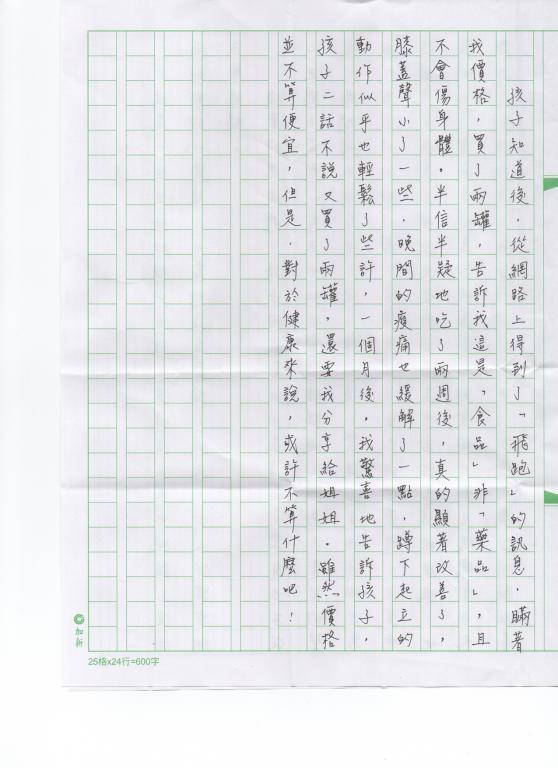 孩子知道後，從網路上得到了「飛跑」的訊息，瞞著
我價格，買了兩罐，告訴我這是「食品」非「藥品」，且
不會傷身體。半信半疑地吃了兩週後，真的顯著改善了，
膝蓋聲小了一些，晚間的痠痛也緩解了一點，蹲下起立的
動作似乎也輕鬆了些許，一個月後，我驚喜地告訴孩子，
孩子二話不說又買了兩罐，還要我分享給姐姐。雖然價格
並不算便宜，但是，對於健康來說，或許不算什麼吧！
加新
25格x24行=600字